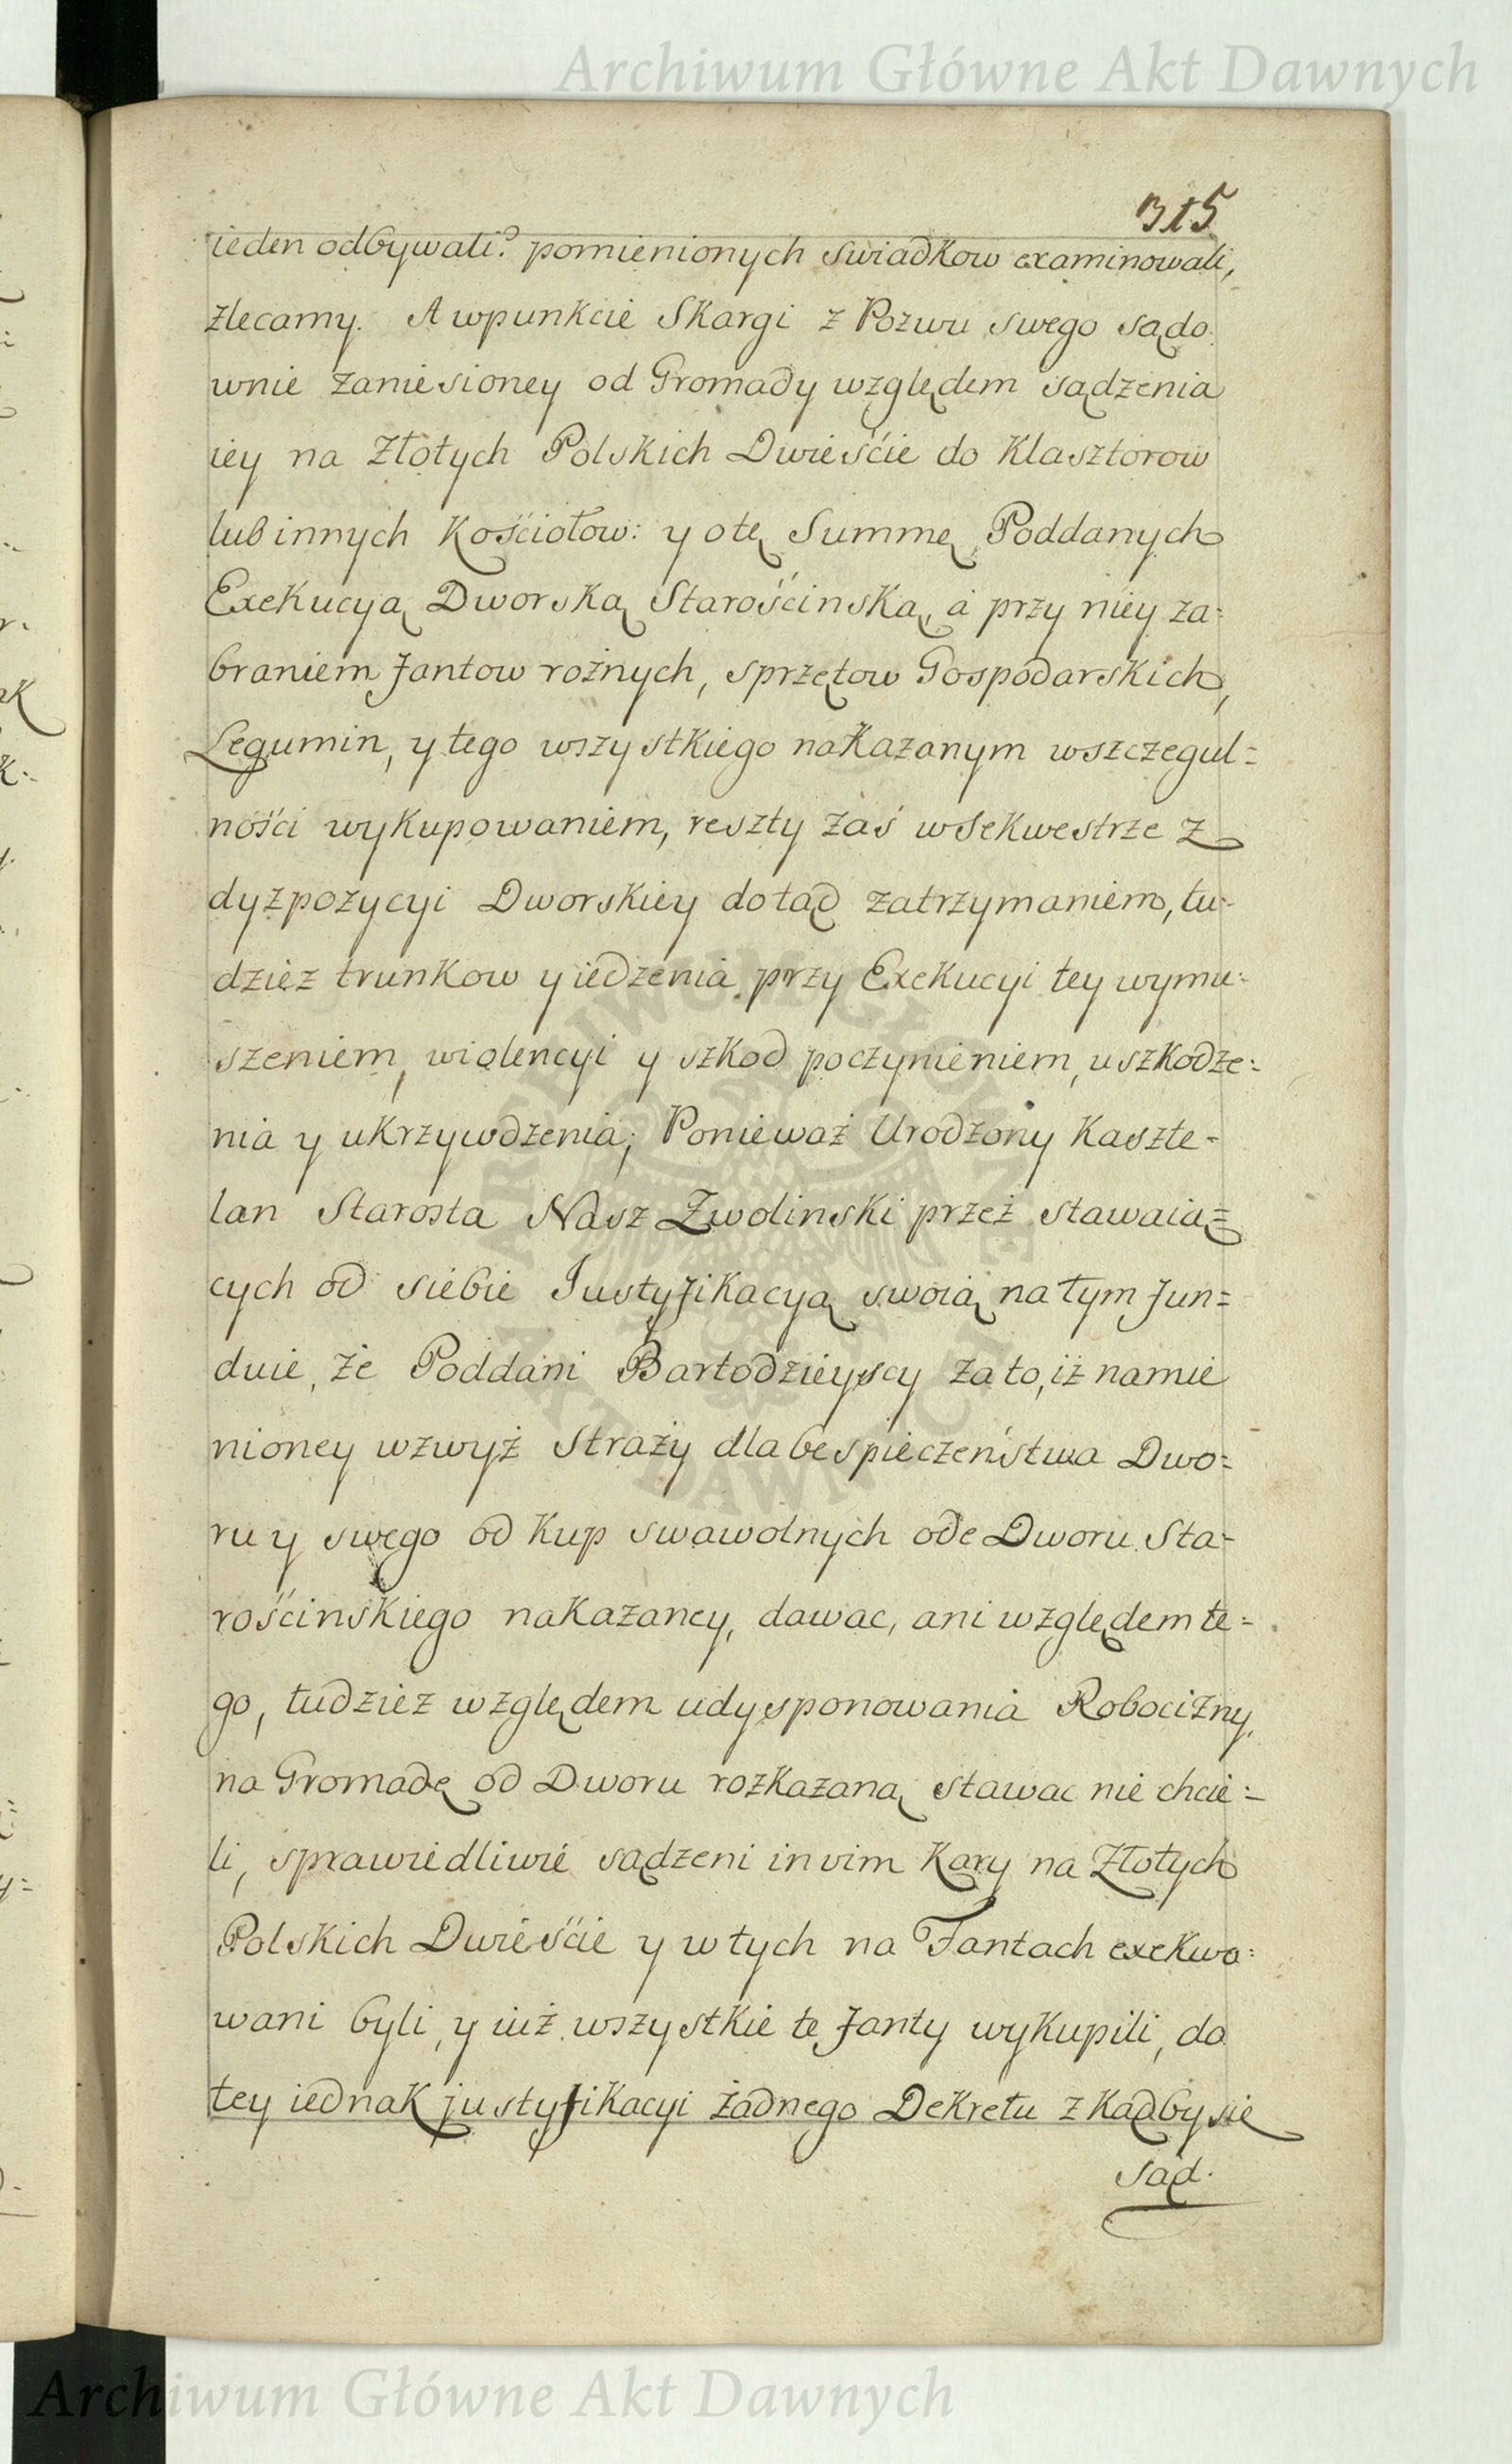 Archiwum Główne Akt Dawnych
315
ieden odbywali? pomienionych swiadkow examinowali,
zlecamy. A wpunkcie Skargi z Pozwu swego sądo:
wnie zaniesioney od Gromady względem sądzenia
iey na Złotych Polskich Dwieście do Klasztorow
lub innych Kościołow: y otę Summę Poddanych
Exekucyą Dworską Starościnską, a przy niey za:
braniem fantow rożnych, sprzętow Gospodarskich,
Legumin, y tego wszystkiego nakazanym wszczegul=
ności wykupowaniem, reszty zaś wsekwestrze z
dyzpozycyi Dworskiey dotąd zatrzymaniem, tu-
dziez trunkow y iedzenia przy Exekucyi tey wymu:
szeniem, wiolencyi y szkod poczynieniem, uszkodze:
nia y ukrzywdzenia; Ponieważ Urodzony Kaszte-
lan Starosta Nasz Zwolinski przez stawaią=
cych od siebie Iustyfikacyą swoią na tym fun=
duie, że Poddani Bartodzieyscy zato, iż namie
nioney wzwyż Straży dla bespieczeństwa Dwo:
ru y swego od kup swawolnych ode Dworu Sta-
rościnskiego nakazaney, dawac, ani względem te=
go, tudziez względem udysponowania Robocizny,
na Gromadę od Dworu rozkazaną stawac nie chcie:
li, sprawiedliwie sądzeni in vim Kary na Złotych
Polskich Dwieście y w tych na Fantach exekwo:
wani byli, y iuż wszystkie te fanty wykupili, do
tey iednak justyfikacyi żadnego Dekretu zkądby się
Sąd.
Archiwum Główne Akt Dawnych